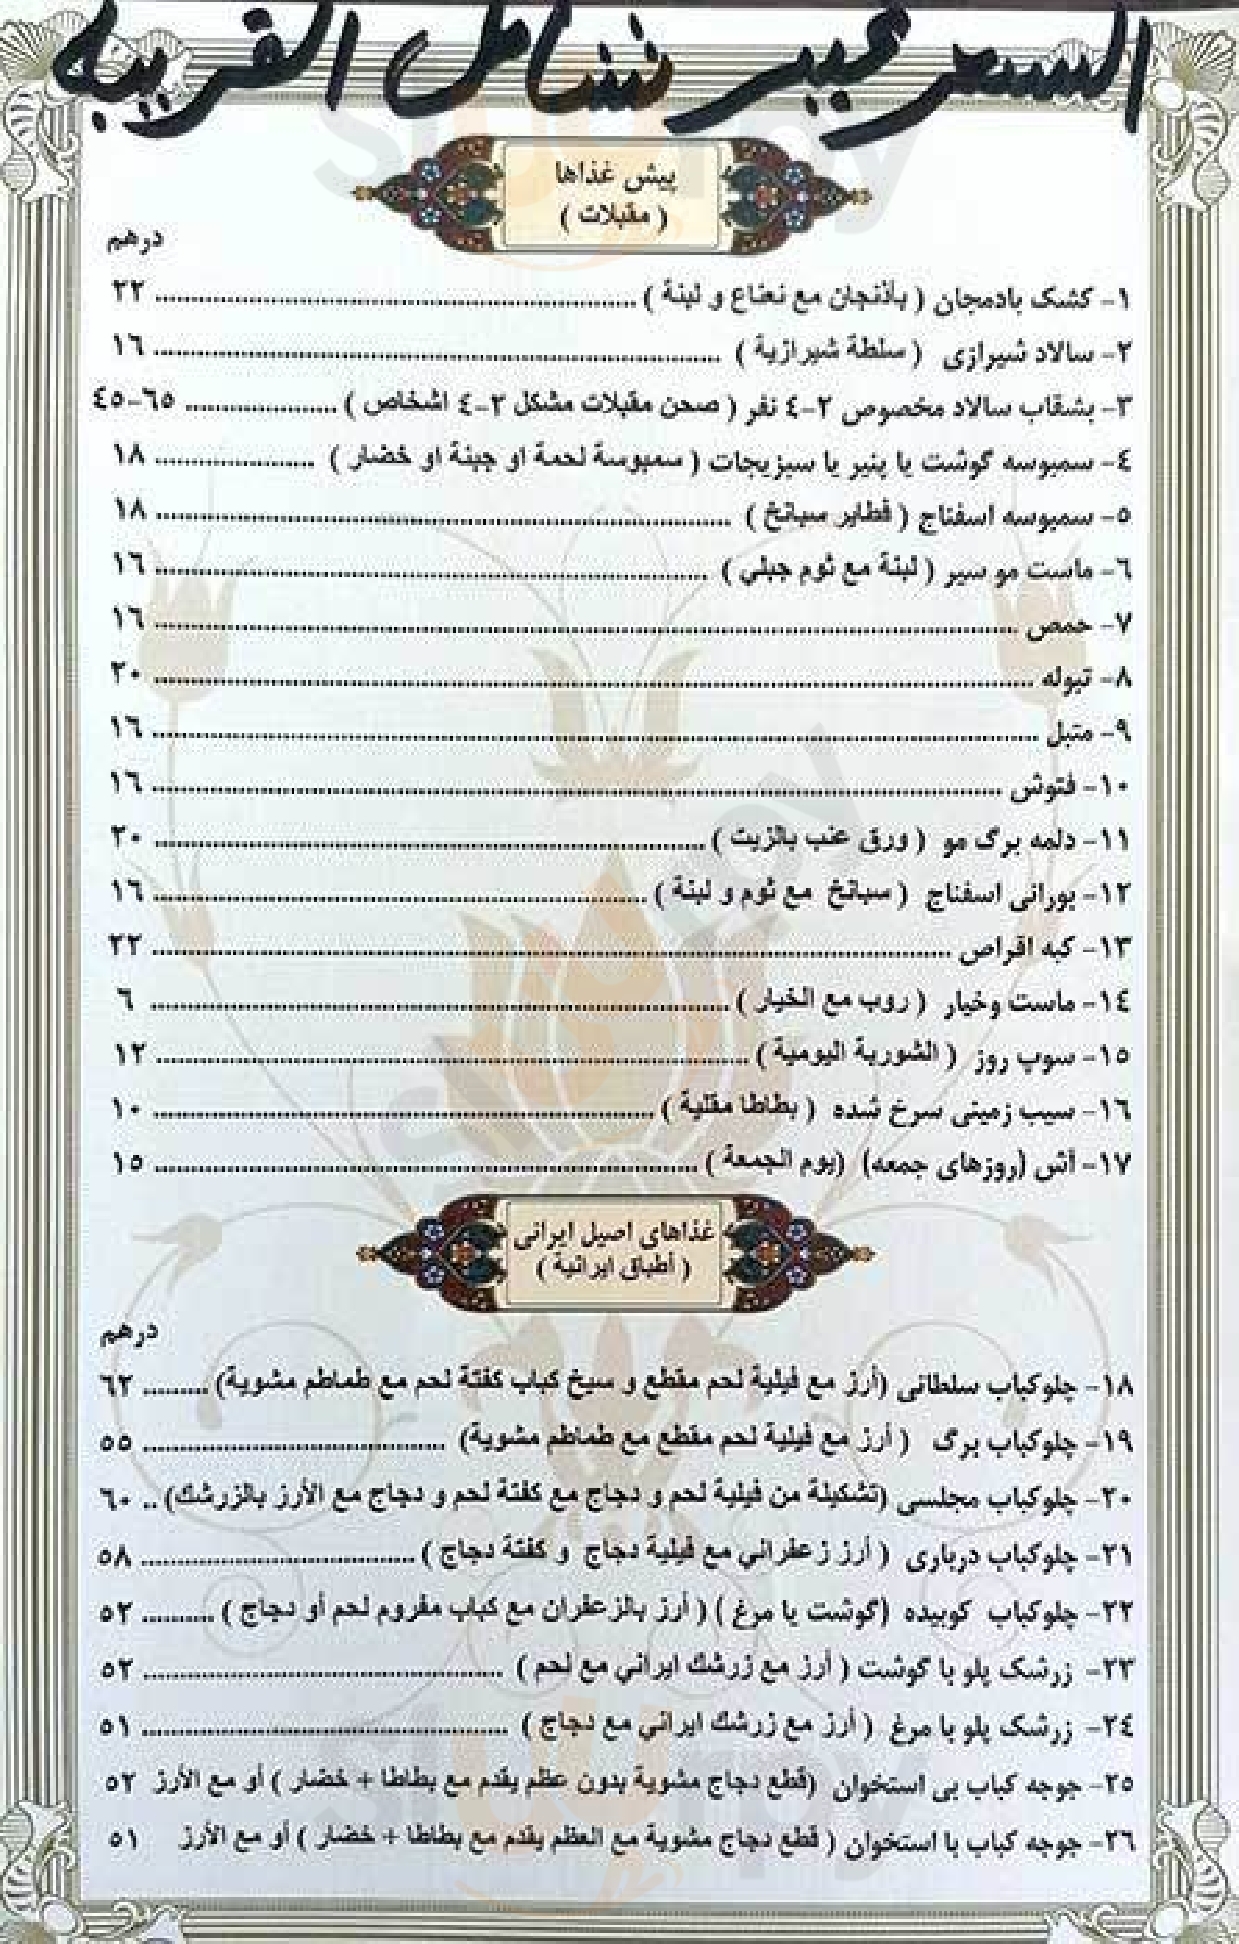 السعر غير شامل الضريبة
پیش غذاها
( مقبلات )
درهم
١- کشک بادمجان ( باذنجان مع نعناع و لبنة ) ٢٢
٢- سالاد شیرازی ( سلطة شيرازية ) ١٦
٣- بشقاب سالاد مخصوص ٢-٤ نفر ( صحن مقبلات مشكل ٢-٤ اشخاص ) ٤٥-٦٥
٤- سمبوسه گوشت یا پنیر یا سبزیجات ( سمبوسة لحمة او جبنة او خضار ) ١٨
٥- سمبوسه اسفناج ( فطاير سبانخ ) ١٨
٦- ماست مو سیر ( لبنة مع ثوم جبلي ) ١٦
٧- حمص ١٦
٨- تبوله ٢٠
٩- متبل ١٦
١٠- فتوش ١٦
١١- دلمه برگ مو ( ورق عنب بالزيت ) ٢٠
١٢- بورانی اسفناج ( سبانخ مع ثوم و لبنة ) ١٦
١٣- کبه اقراص ٢٢
١٤- ماست وخیار ( روب مع الخيار ) ٦
١٥- سوپ روز ( الشوربة اليومية ) ١٢
١٦- سیب زمینی سرخ شده ( بطاطا مقلية ) ١٠
١٧- آش (روزهای جمعه) (يوم الجمعة ) ١٥
غذاهای اصیل ایرانی
( أطباق ايرانية )
درهم
١٨- چلوکباب سلطانی (أرز مع فيلية لحم مقطع و سيخ كباب كفتة لحم مع طماطم مشوية) ٦٢
١٩- چلوکباب برگ ( أرز مع فيلية لحم مقطع مع طماطم مشوية) ٥٥
٢٠- چلوکباب مجلسی (تشكيلة من فيلية لحم و دجاج مع كفتة لحم و دجاج مع الأرز بالزرشك) ٦٠
٢١- چلوکباب درباری ( أرز زعفراني مع فيلية دجاج و كفتة دجاج ) ٥٨
٢٢- چلوکباب کوبیده (گوشت یا مرغ ) ( أرز بالزعفران مع كباب مفروم لحم أو دجاج ) ٥٢
٢٣- زرشک پلو با گوشت ( أرز مع زرشك ايراني مع لحم ) ٥٢
٢٤- زرشک پلو با مرغ ( أرز مع زرشك ايراني مع دجاج ) ٥١
٢٥- جوجه کباب بی استخوان (قطع دجاج مشوية بدون عظم يقدم مع بطاطا + خضار ) أو مع الأرز ٥٢
٢٦- جوجه کباب با استخوان ( قطع دجاج مشوية مع العظم يقدم مع بطاطا + خضار ) أو مع الأرز ٥١